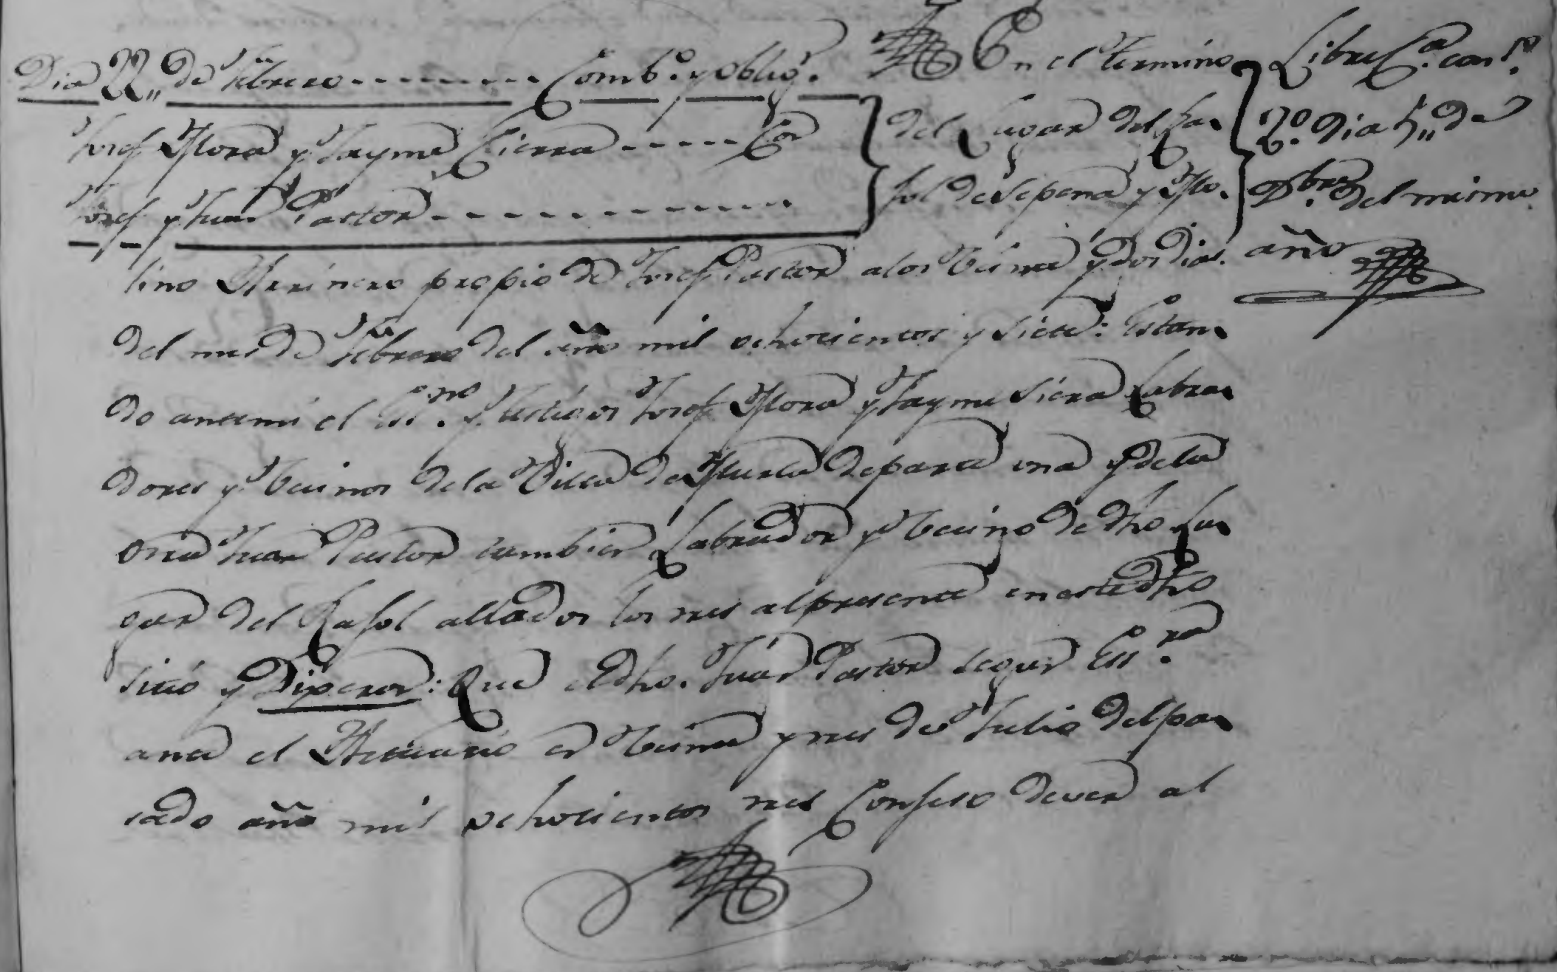 Dia 22,, de Febrero - - - - - - - - - Comb.o y oblig.n
Josef Mora y Jayme Sierra - - - - - Con
Josef y Juan Pastor - - - - - - - - - - - -
En el termino
del Lugar del Ra-
fol de y Mo-
lino Arinero propio de Josef Pastor a los veinte y dos dias
del mes de Febrero del año mil ochocientos y siete: Estan-
do ante mi el Ess.no y testigos Josef Mora y Jayme Siera Labra-
dores y Vecinos de la Villa de Murla de parte una y de la
otra Juan Pastor tambien Labrador y Vecino de dho Lu-
gar del Rafol allados los tres al presente en este dho
sitio y Dixeron: Que el dho. Juan Pastor segun Ess.ra
ante el Actuario en veinte y tres de Julio del pa-
sado año mil ochocientos tres Confeso dever al
Libre C.a con
2.o dia 5,, de
Dbre. del mismo
año